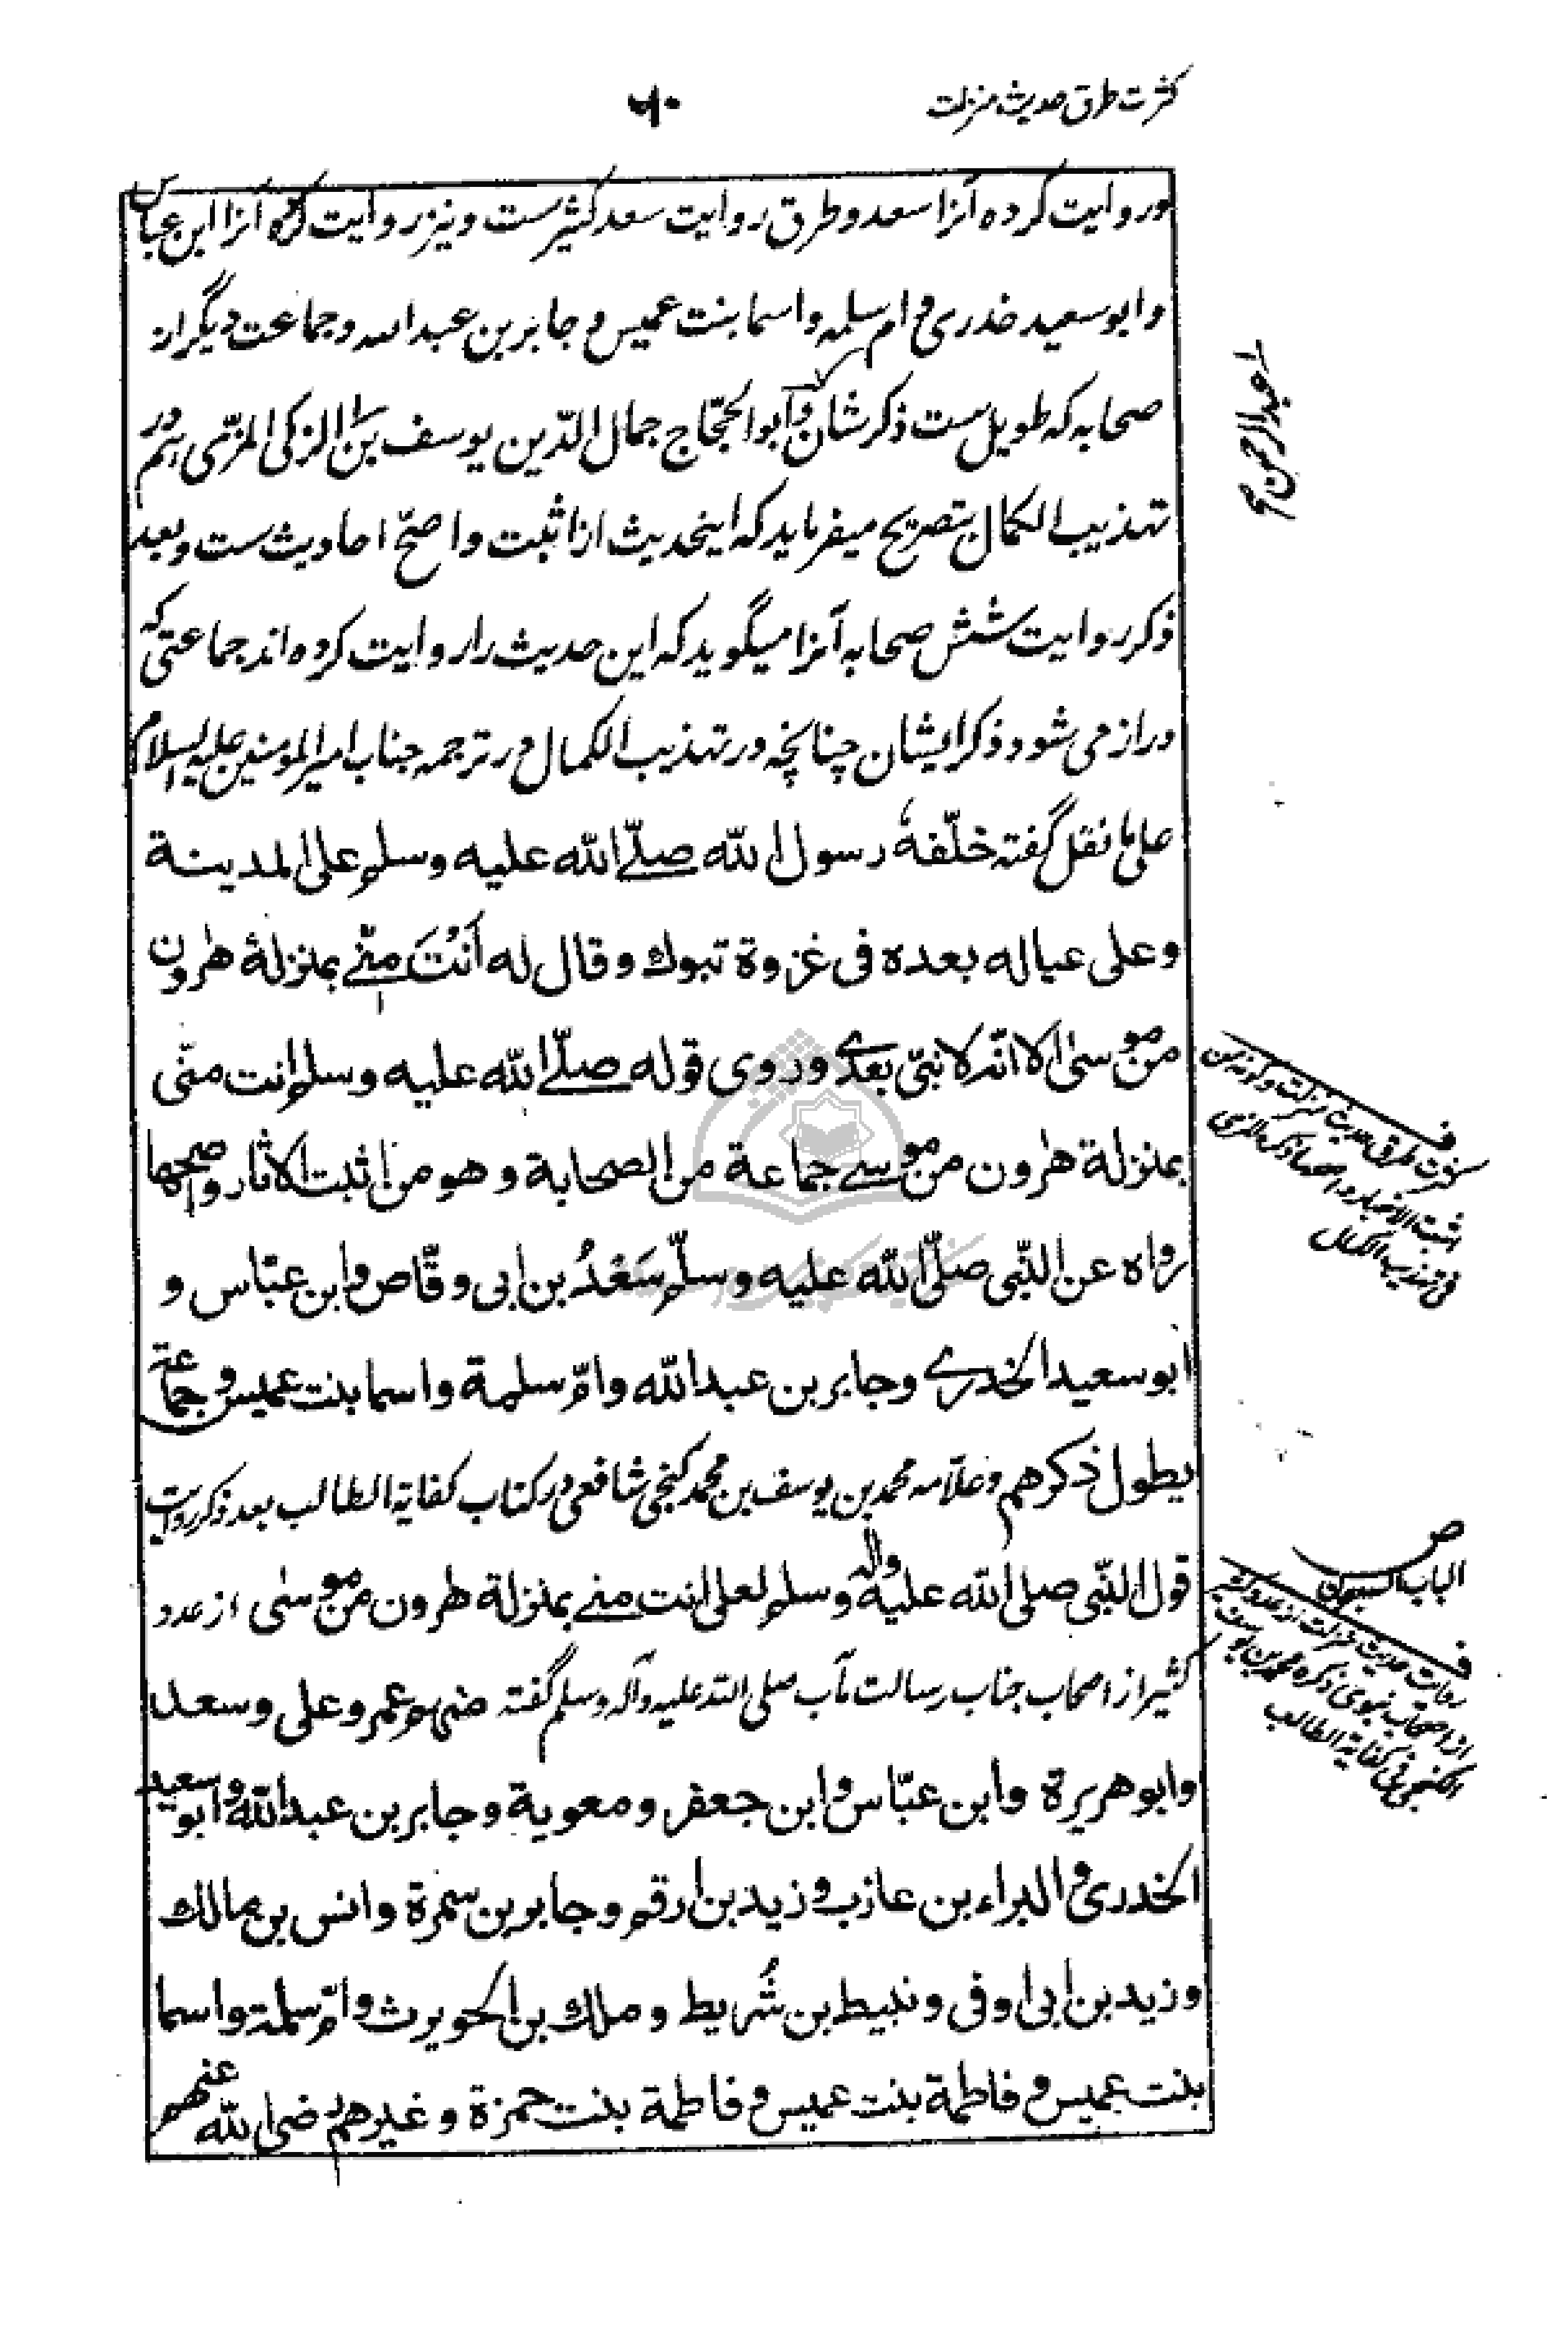 کثرت طرق حدیث منزلت
۶۰
و روایت کرده آنرا سعد و طرق روایت سعد کثیرست و نیز روایت کرده آنرا ابن عباس
و ابو سعید خدری و ام سلمه و اسما بنت عمیس و جابر بن عبد الله و جماعت دیگر از
صحابه که طویل ست ذکر شان و ابو الحجّاج جمال الدّین یوسف بن الزکی المزّی هم در
تهذیب الکمال بتصریح میفرماید که اینحدیث از اثبت و اصحّ احادیث ست و بعد
ذکر روایت شش صحابه آنرا میگوید که این حدیث را روایت کرده اند جماعتی که
دراز می شود ذکر ایشان چنانچه در تهذیب الکمال در ترجمه جناب امیر المومنین علیه السلام
علی ما نقل گفته خلّفهٗ رسول الله صلّے الله علیه وسلم علی المدینة
وعلی عیاله بعده فی غزوة تبوك وقال له اَنْتَ منّے بمنزلة هٰرون
من موسیٰ الا انّه لا نبیّ بعدے وروی قوله صلّے الله علیه وسلم انت منّی
بمنزلة هٰرون من موسے جماعة من الصحابة وهو من اثبت الاثار واصحها
رواه عن النّبی صلّی الله علیه وسلّم سَعْدُ بن ابی وقّاص وابن عبّاس و
ابو سعید الخدرے وجابر بن عبد الله وامّ سلمة واسما بنت عمیس وجماعة
یطول ذکرهم و علّامه محمد بن یوسف بن محمد کنجی شافعی در کتاب کفایة الطالب بعد ذکر روایت
قول النّبی صلی الله علیه واله وسلم لعلی انت منے بمنزلة هٰرون من موسٰی از عدد
کثیر از اصحاب جناب رسالت مآب صلی الله علیه وآله وسلم گفته منهم عمر وعلی وسعد
وابو هریرة وابن عبّاس وابن جعفر ومعویة وجابر بن عبد الله وابو سعید
الخدری والبراء بن عازب وزید بن ارقم وجابر بن سمرة وانس بن مالك
وزید بن ابی اوفی ونبیط بن شُریط وملك بن الحویرث وامّ سلمة واسما
بنت عمیس وفاطمة بنت عمیس وفاطمة بنت حمزة وغیرهم رضی الله عنهم
عبد الرحمن
ف
کثرت طرق حدیث منزلت و کونه من
اثبت الاخبار و اصحها ذکره المزی
فی تهذیب الکمال
ص
الباب السبعون
ف
روایت حدیث منزلت از عدد کثیر
از اصحاب نبوی ذکره محمد بن یوسف
الکنجی فی کفایة الطالب